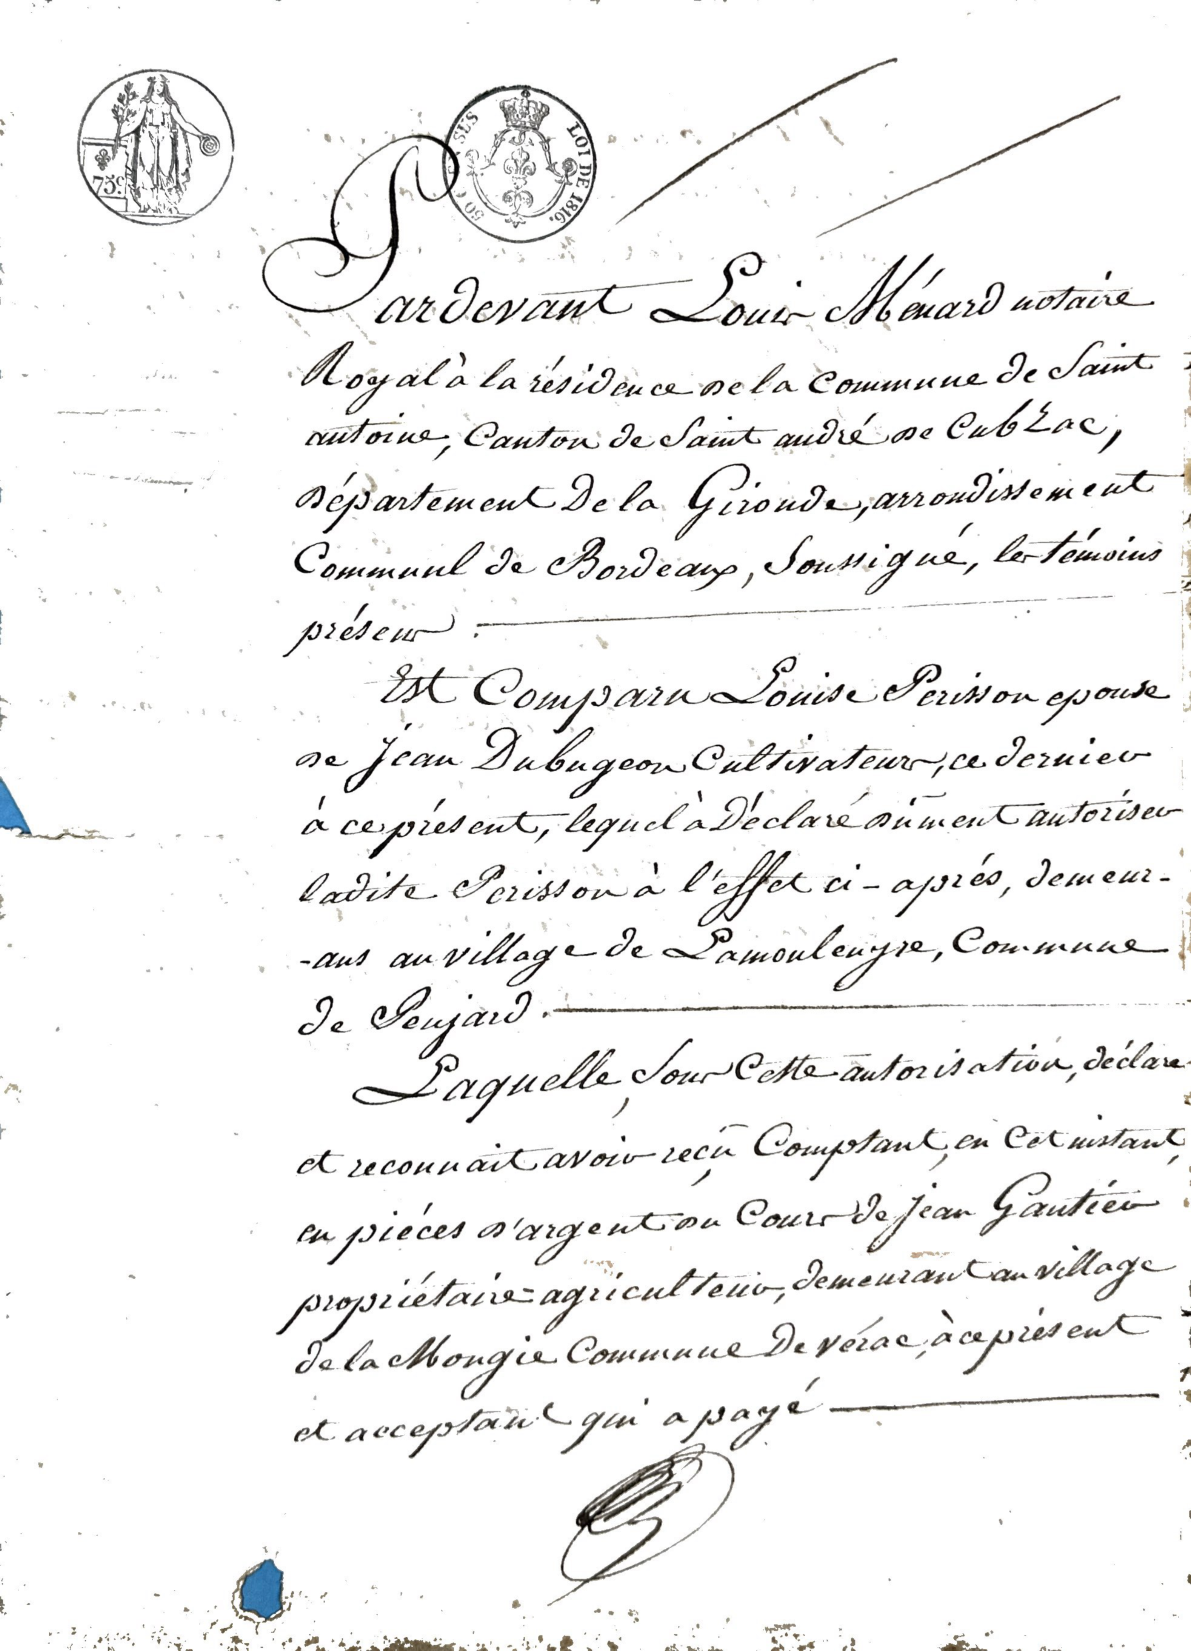 75c.
50 C. EN SUS LOI DE 1816.
Pardevant Louis Ménard notaire
Royal à la résidence de la Commune de Saint
antoine, Canton de Saint andré de CubZac,
département De la Gironde, arrondissement
Communl de Bordeaux, Soussigné, les témoins
présens.
Est Comparu Louise Perisson epouse
de Jean Dubugeon Cultivateur, ce dernier
à ce présent, lequel à Déclaré dûment autoriser
ladite Perisson à l'effet ci-aprés, demeur-
-ans au village de Lamouleyre, Commune
de Peujard.
Laquelle, Sous Cette autorisation, déclare
et reconnait avoir reçu Comptant, en Cet instant,
en piéces d'argent du Cours de Jean Gautier
propriétaire=agriculteur, demeurant au village
de la Mongie Commune De vérac, à ce présent
et acceptant qui a payé